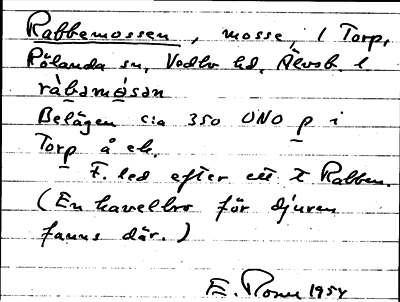 Rabbemossen, mosse, i Torp,
Rölanda sn, Vedbo hd, Älvsb. l
ràbamósan
Belägen cia 350 ONO p i
Torp å ek.
F. led efter ett t Rabben.
(En kavelbro för djuren
fanns där.)
E. 1954